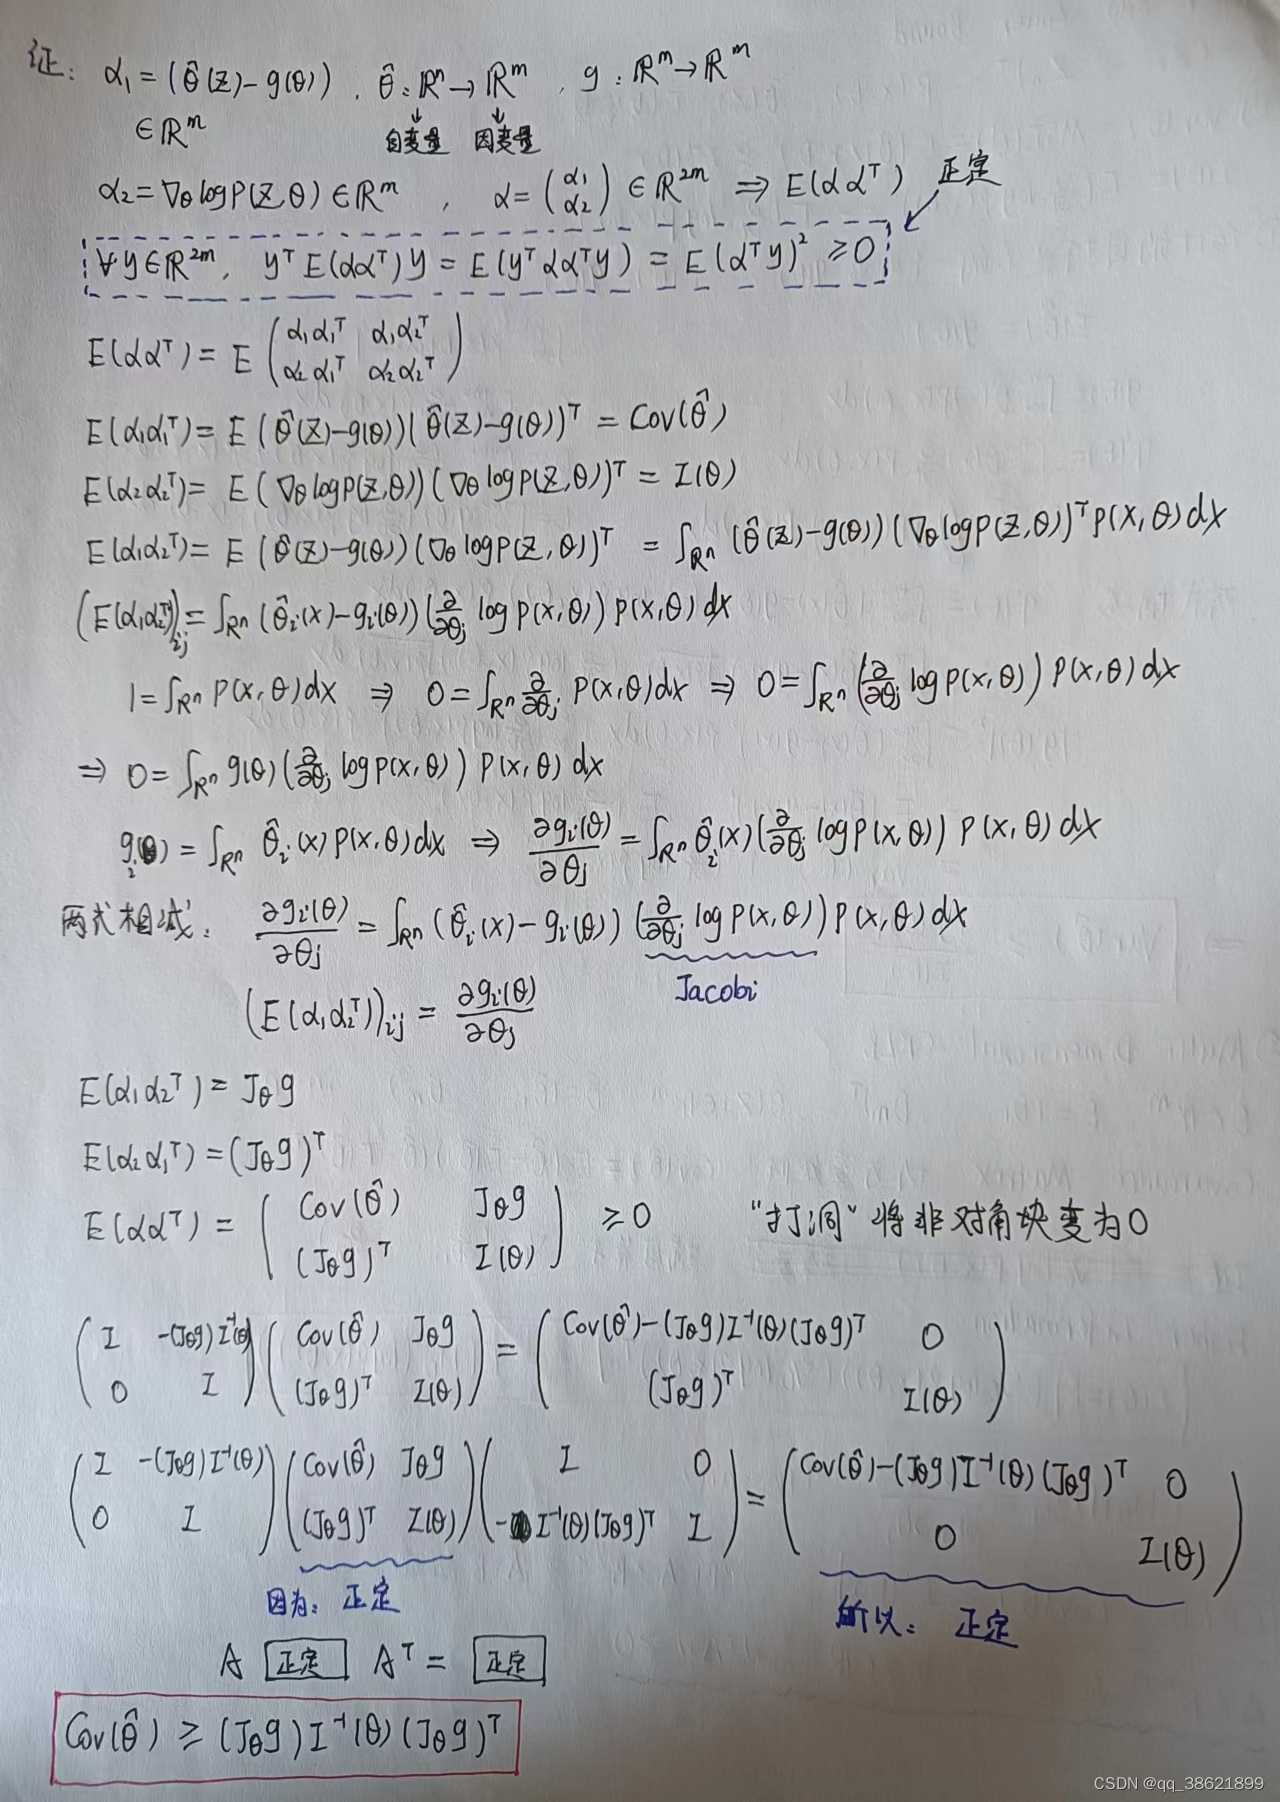 证: α₁ = (θ̂(Z) - g(θ)) , θ̂: ℝⁿ → ℝᵐ , g: ℝᵐ → ℝᵐ
∈ ℝᵐ 自变量 因变量
α₂ = ∇θ log P(Z, θ) ∈ ℝᵐ , α = (α₁ α₂) ∈ ℝ²ᵐ ⇒ E(ααᵀ) 正定
∀ y ∈ ℝ²ᵐ, yᵀ E(ααᵀ) y = E(yᵀααᵀy) = E(αᵀy)² ≥ 0
E(ααᵀ) = E (α₁α₁ᵀ α₁α₂ᵀ
α₂α₁ᵀ α₂α₂ᵀ)
E(α₁α₁ᵀ) = E (θ̂(Z) - g(θ))(θ̂(Z) - g(θ))ᵀ = Cov(θ̂)
E(α₂α₂ᵀ) = E (∇θ log P(Z, θ))(∇θ log P(Z, θ))ᵀ = I(θ)
E(α₁α₂ᵀ) = E (θ̂(Z) - g(θ))(∇θ log P(Z, θ))ᵀ = ∫ℝⁿ (θ̂(Z) - g(θ))(∇θ log P(Z, θ))ᵀ P(x, θ) dx
(E(α₁α₂ᵀ))ij = ∫ℝⁿ (θ̂i(x) - gi(θ))(∂/∂θj log P(x, θ)) P(x, θ) dx
1 = ∫ℝⁿ P(x, θ) dx ⇒ 0 = ∫ℝⁿ ∂/∂θj P(x, θ) dx ⇒ 0 = ∫ℝⁿ (∂/∂θj log P(x, θ)) P(x, θ) dx
⇒ 0 = ∫ℝⁿ g(θ) (∂/∂θj log P(x, θ)) P(x, θ) dx
gi(θ) = ∫ℝⁿ θ̂i(x) P(x, θ) dx ⇒ ∂gi(θ)/∂θj = ∫ℝⁿ θ̂i(x) (∂/∂θj log P(x, θ)) P(x, θ) dx
两式相减: ∂gi(θ)/∂θj = ∫ℝⁿ (θ̂i(x) - gi(θ)) (∂/∂θj log P(x, θ)) P(x, θ) dx
Jacobi
(E(α₁α₂ᵀ))ij = ∂gi(θ)/∂θj
E(α₁α₂ᵀ) = Jθg
E(α₂α₁ᵀ) = (Jθg)ᵀ
E(ααᵀ) = (Cov(θ̂) Jθg
(Jθg)ᵀ I(θ)) ≥ 0 "打洞"将非对角块变为0
(I -(Jθg)I⁻¹(θ)
0 I) (Cov(θ̂) Jθg
(Jθg)ᵀ I(θ)) = (Cov(θ̂) - (Jθg)I⁻¹(θ)(Jθg)ᵀ 0
(Jθg)ᵀ I(θ))
(I -(Jθg)I⁻¹(θ)
0 I) (Cov(θ̂) Jθg
(Jθg)ᵀ I(θ)) (I 0
-I⁻¹(θ)(Jθg)ᵀ I) = (Cov(θ̂) - (Jθg)I⁻¹(θ)(Jθg)ᵀ 0
0 I(θ))
因为: 正定 所以: 正定
A 正定 Aᵀ = 正定
Cov(θ̂) ≥ (Jθg) I⁻¹(θ) (Jθg)ᵀ
CSDN @qq_38621899